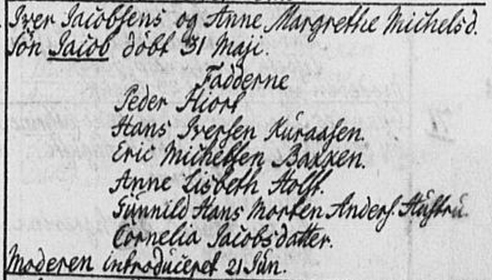 Iver Jacobsens og Anne Margrethe Michelsd.
Søn Jacob døbt 31 Maji.
Fadderne
Peder Hiort
Hans Iversen Kuraasen.
Eric Michelsen Baxxen.
Anne Lisbeth Holst.
Gunnild Hans Morten Anders. Hustru.
Cornelia Jacobsdatter.
Moderen introduceret 21 Jun.